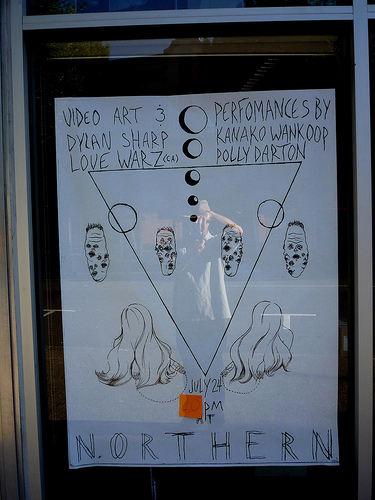 VIDEO ART &
DYLAN SHARP
LOVE WARZ (CA)
PERFOMANCES BY
KANAKO WANKOOP
POLLY DARTON
JULY 24
PM
AT
NORTHERN